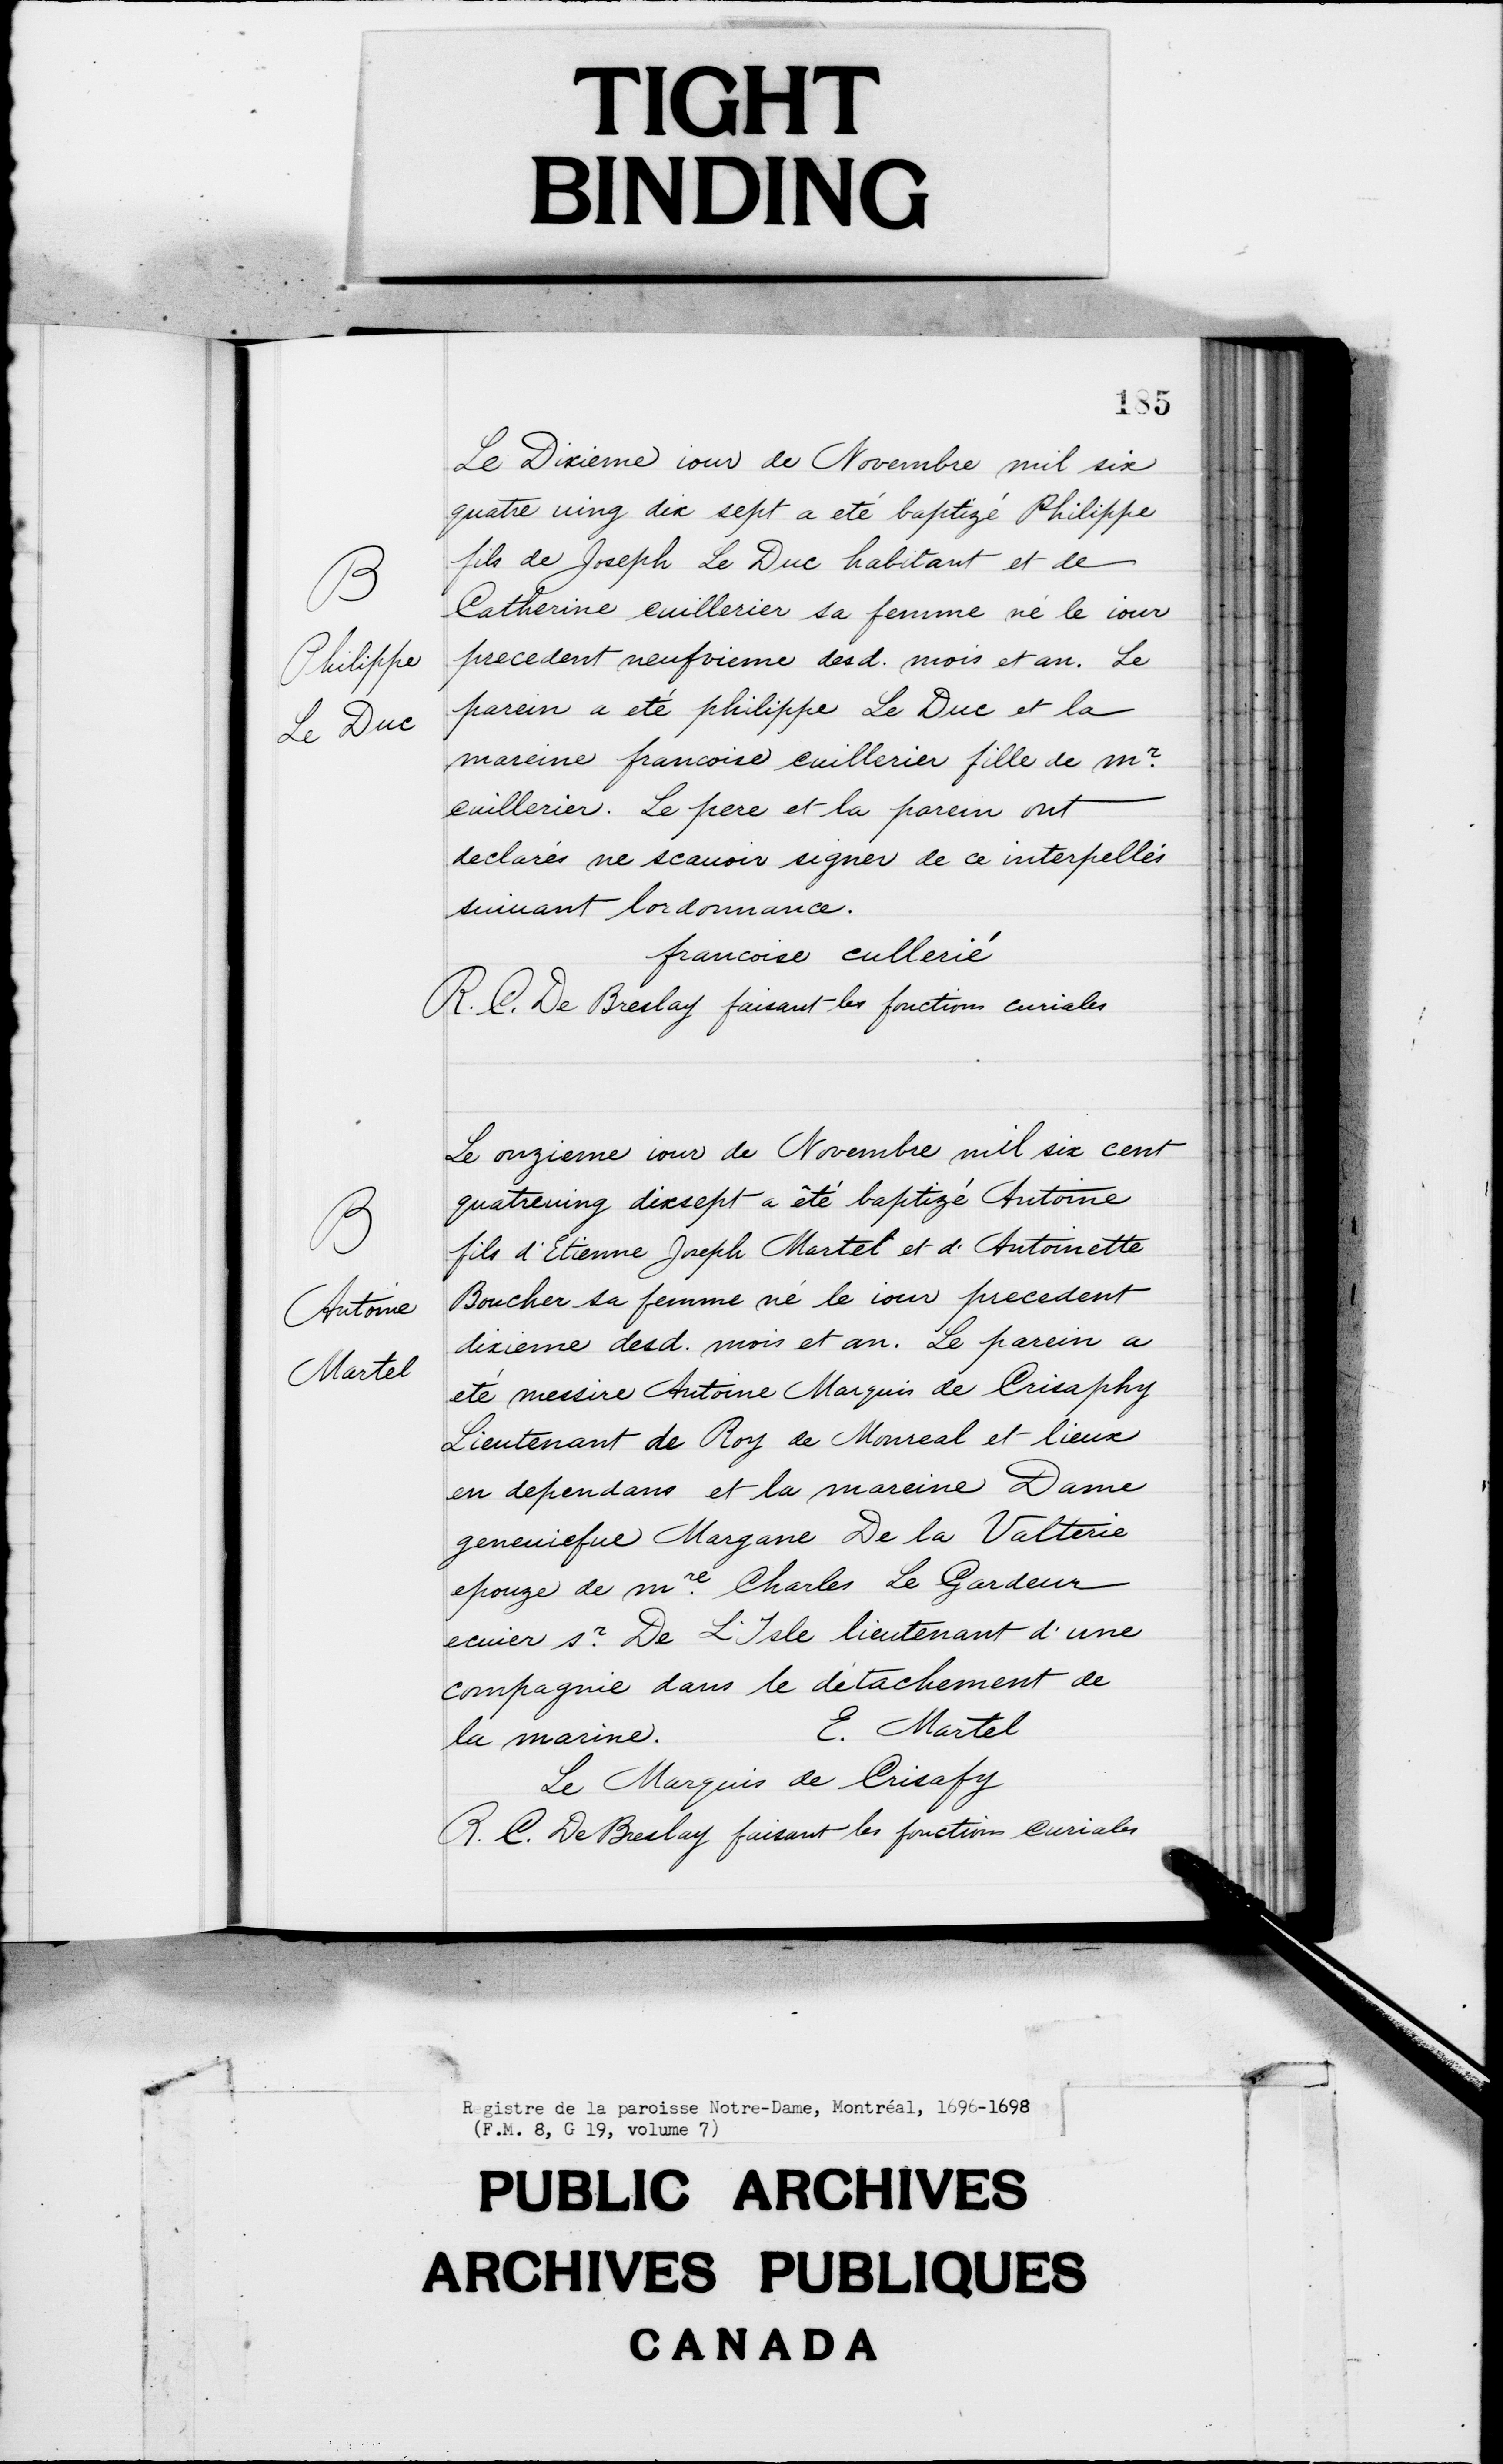 TIGHT
BINDING
185
Le Dixieme iour de Novembre mil six
quatre uing dix sept a eté baptizé Philippe
fils de Joseph Le Duc habitant et de
Catherine cuillerier sa femme né le iour
precedent neufvieme desd. mois et an. Le
parein a eté philippe Le Duc et la
mareine francoise cuillerier fille de mr.
cuillerier. Le pere et la parein ont
declarés ne scauoir signer de ce interpellés
suiuant lordonnance.
francoise cullerié
R. C. De Breslay faisant les fonctions curiales
B
Philippe
Le Duc
Le onzieme iour de Novembre mil six cent
quatreuing dixsept a été baptizé Antoine
fils d'Etienne Joseph Martel et d'Antoinette
Boucher sa femme né le iour precedent
dixieme desd. mois et an. Le parein a
eté messire Antoine Marquis de Crisaphy
Lieutenant de Roy de Monreal et lieux
en dependans et la mareine Dame
geneuiefue Margane De la Valterie
epouze de mre. Charles Le Gardeur
ecuier sr. De L'Isle lieutenant d'une
compagnie dans le détachement de
la marine. E. Martel
Le Marquis de Crisafy
R. C. De Breslay faisant les fonctions curiales
B
Antoine
Martel
Registre de la paroisse Notre-Dame, Montréal, 1696-1698
(F.M. 8, G 19, volume 7)
PUBLIC ARCHIVES
ARCHIVES PUBLIQUES
CANADA